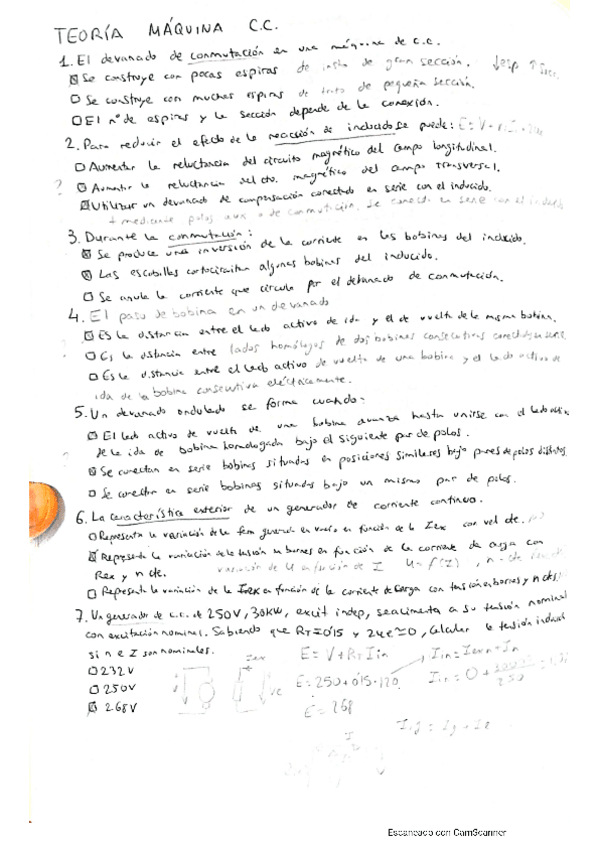 TEORÍA MÁQUINA C.C.
1. El devanado de conmutación en una máquina de c.c.
Se construye con pocas espiras de hilo de gran sección. ↓esp ↑
Se construye con muchas espiras de hilo de pequeña sección.
El nº de espiras y la sección depende de la conexión.
2. Para reducir el efecto de la reacción de inducido se puede:
Aumentar la reluctancia del circuito magnético del campo longitudinal.
? Aumentar la reluctancia del cto. magnético del campo transversal.
Utilizar un devanado de compensación conectado en serie con el inducido.
+ mediante polos aux o de conmutación. Se conecta en serie con el inducido
3. Durante la conmutación:
Se produce una inversión de la corriente en las bobinas del inducido.
Las escobillas cortocircuitan algunas bobinas del inducido.
Se anula la corriente que circula por el devanado de conmutación.
4. El paso de bobina en un devanado
Es la distancia entre el lado activo de ida y el de vuelta de la misma bobina.
Es la distancia entre lados homólogos de dos bobinas consecutivas
Es la distancia entre el lado activo de vuelta de una bobina y el lado activo de
ida de la bobina consecutiva eléctricamente.
5. Un devanado ondulado se forma cuando:
El lado activo de vuelta de una bobina avanza hasta unirse con el lado activo
de la ida de bobina homologada bajo el siguiente par de polos.
Se conectan en serie bobinas situadas en posiciones similares bajo pares de polos distintos
Se conectan en serie bobinas situadas bajo un mismo par de polos.
6. La característica exterior de un generador de corriente continua.
Representa la variación de la fem generada en vacío en función de la Iex con vel cte.
Representa la variación de la tensión en bornes en función de la corriente de carga con
Rex y n cte. variación de U en función de I U=f(I), n=cte
Representa la variación de la Iex en función de la corriente de carga con tensión en bornes y n cts.
7. Un generador de c.c. de 250V, 30kW, excit indep, se alimenta a su tensión nominal
con excitación nominal. Sabiendo que Ri=0'15 y 2ue≃0, calcular la tensión inducida
si n e I son nominales.
232V
250V
268V
E=V+RiIin
E=250+0'15·120
E=268